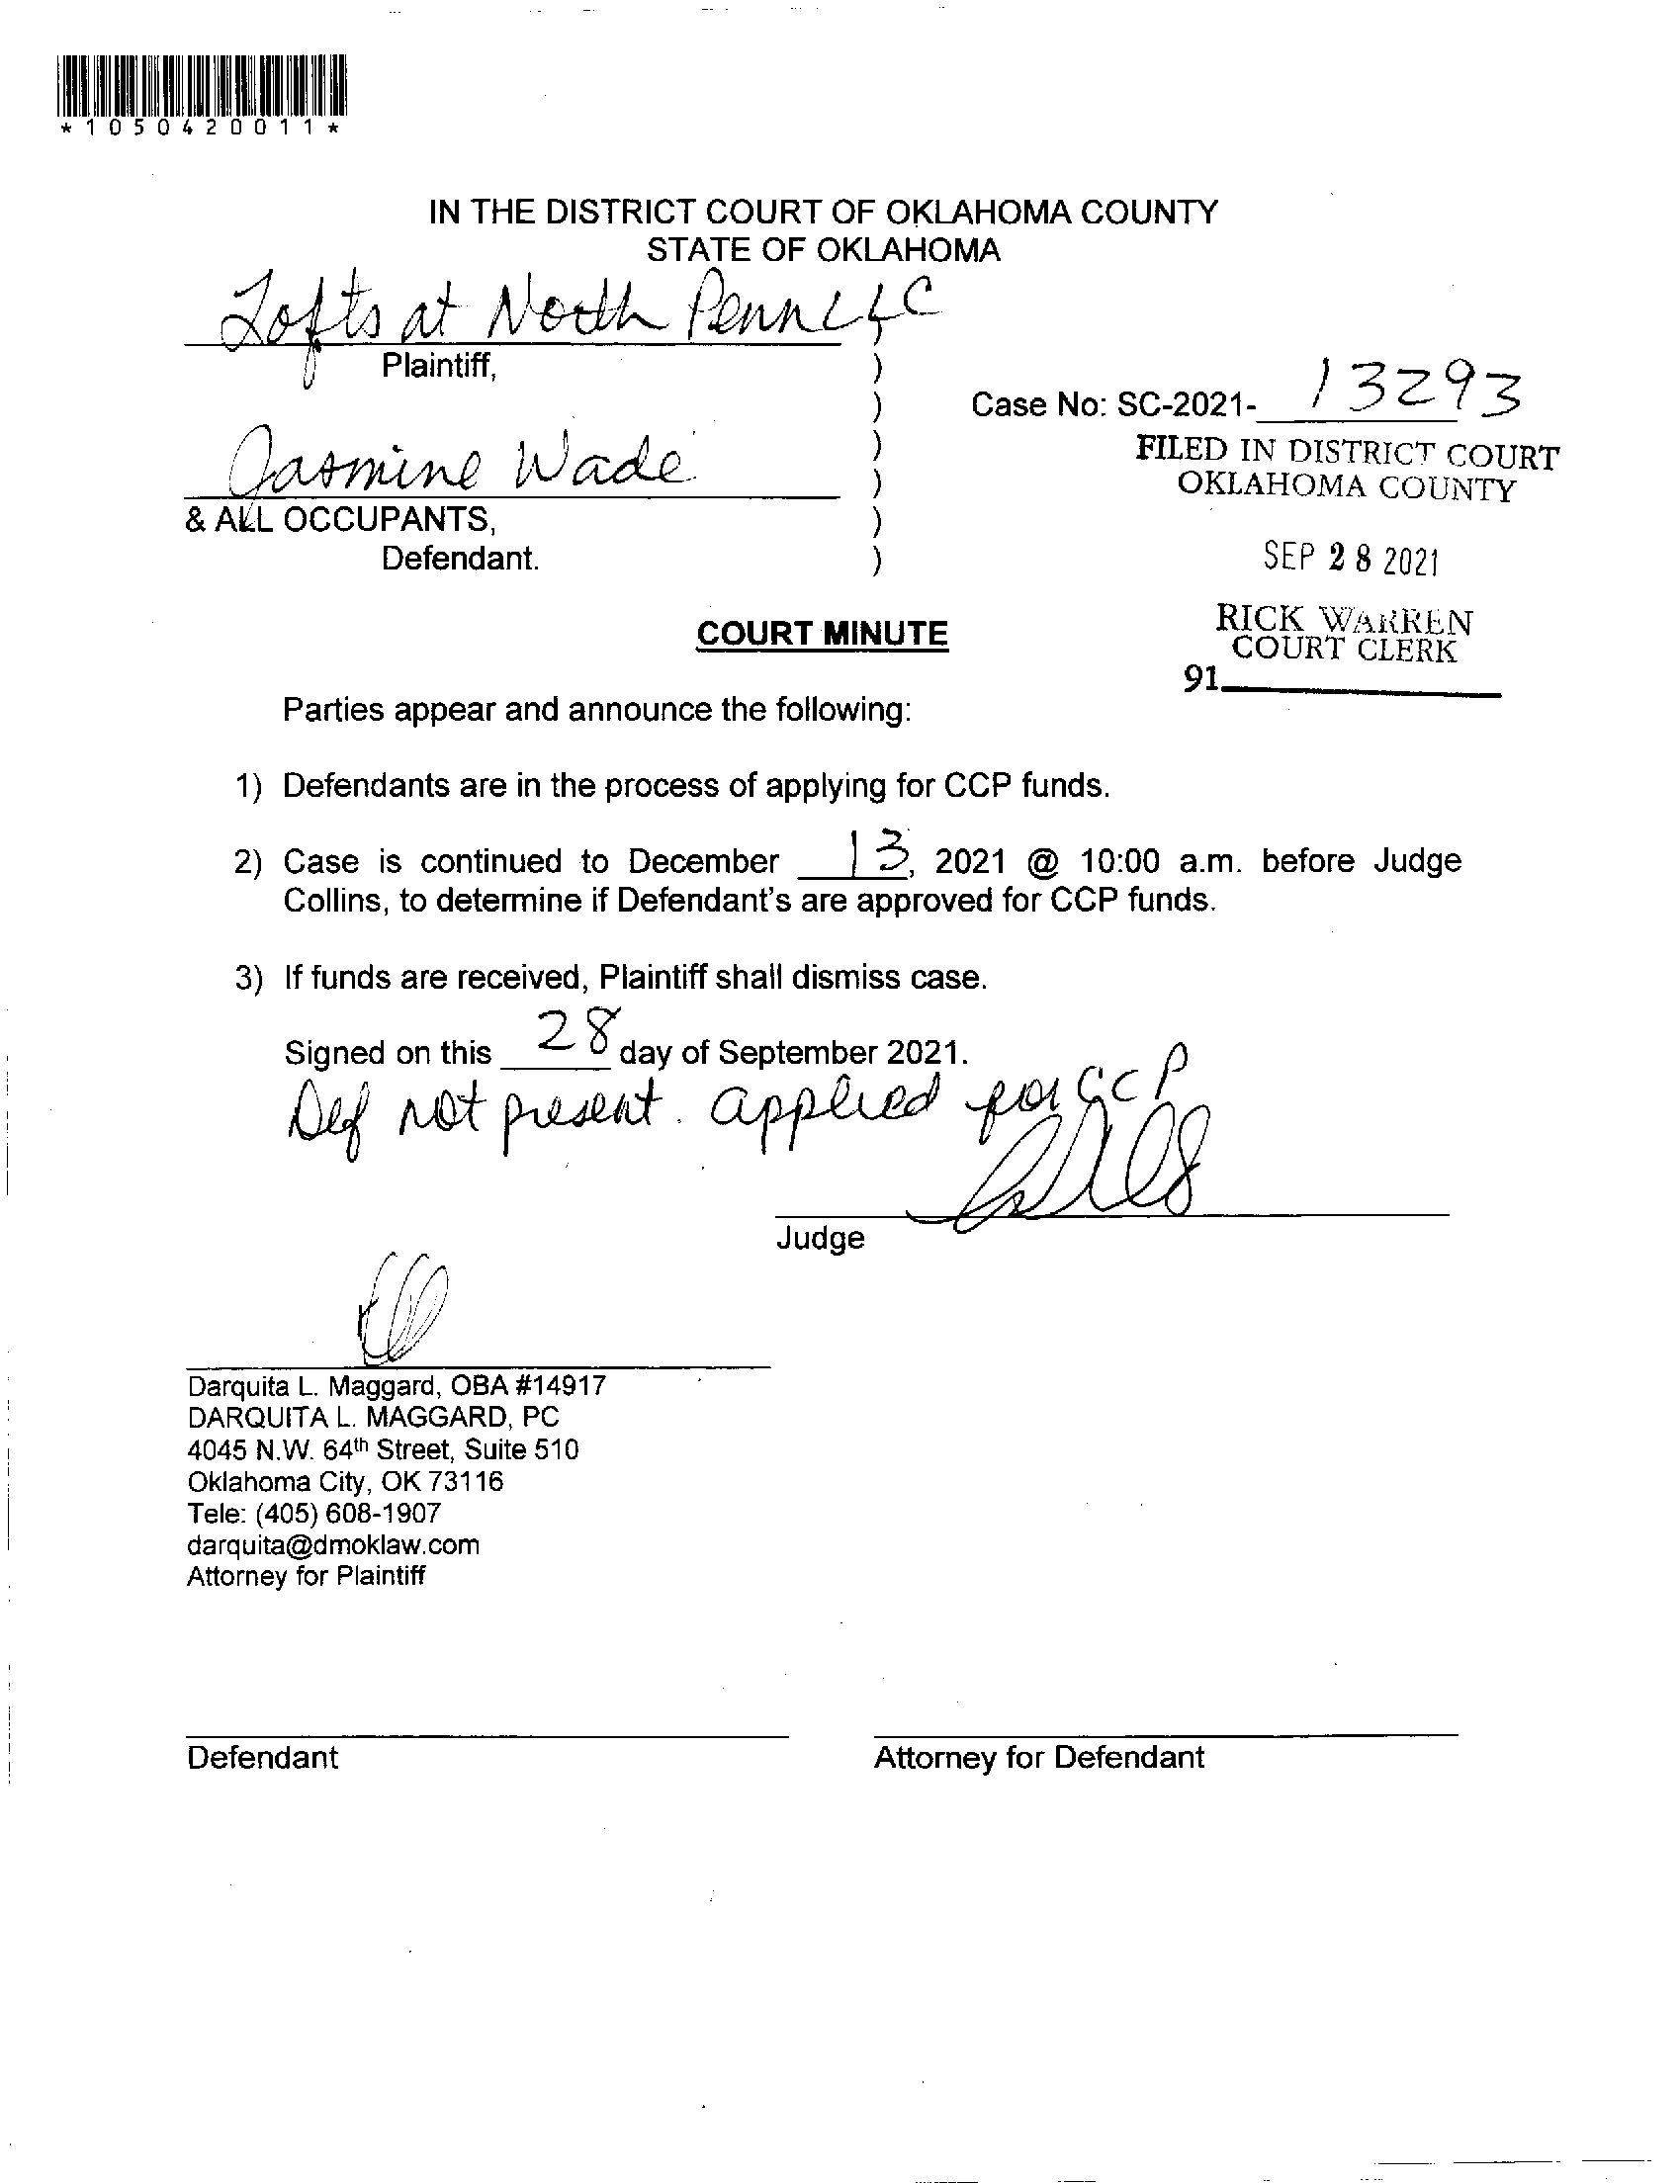 *1050420011*
IN THE DISTRICT COURT OF OKLAHOMA COUNTY
STATE OF OKLAHOMA
Lofts at North Penn LLC
Plaintiff, )
Case No: SC-2021- 13293
)
Jasmine Wade )
& ALL OCCUPANTS, )
Defendant. )
FILED IN DISTRICT COURT
OKLAHOMA COUNTY
SEP 28 2021
RICK WARREN
COURT CLERK
91
COURT MINUTE
Parties appear and announce the following:
1) Defendants are in the process of applying for CCP funds.
2) Case is continued to December 13, 2021 @ 10:00 a.m. before Judge
Collins, to determine if Defendant's are approved for CCP funds.
3) If funds are received, Plaintiff shall dismiss case.
Signed on this 28 day of September 2021.
Def not present. applied for CCP
Judge
Darquita L. Maggard, OBA #14917
DARQUITA L. MAGGARD, PC
4045 N.W. 64th Street, Suite 510
Oklahoma City, OK 73116
Tele: (405) 608-1907
darquita@dmoklaw.com
Attorney for Plaintiff
Defendant Attorney for Defendant